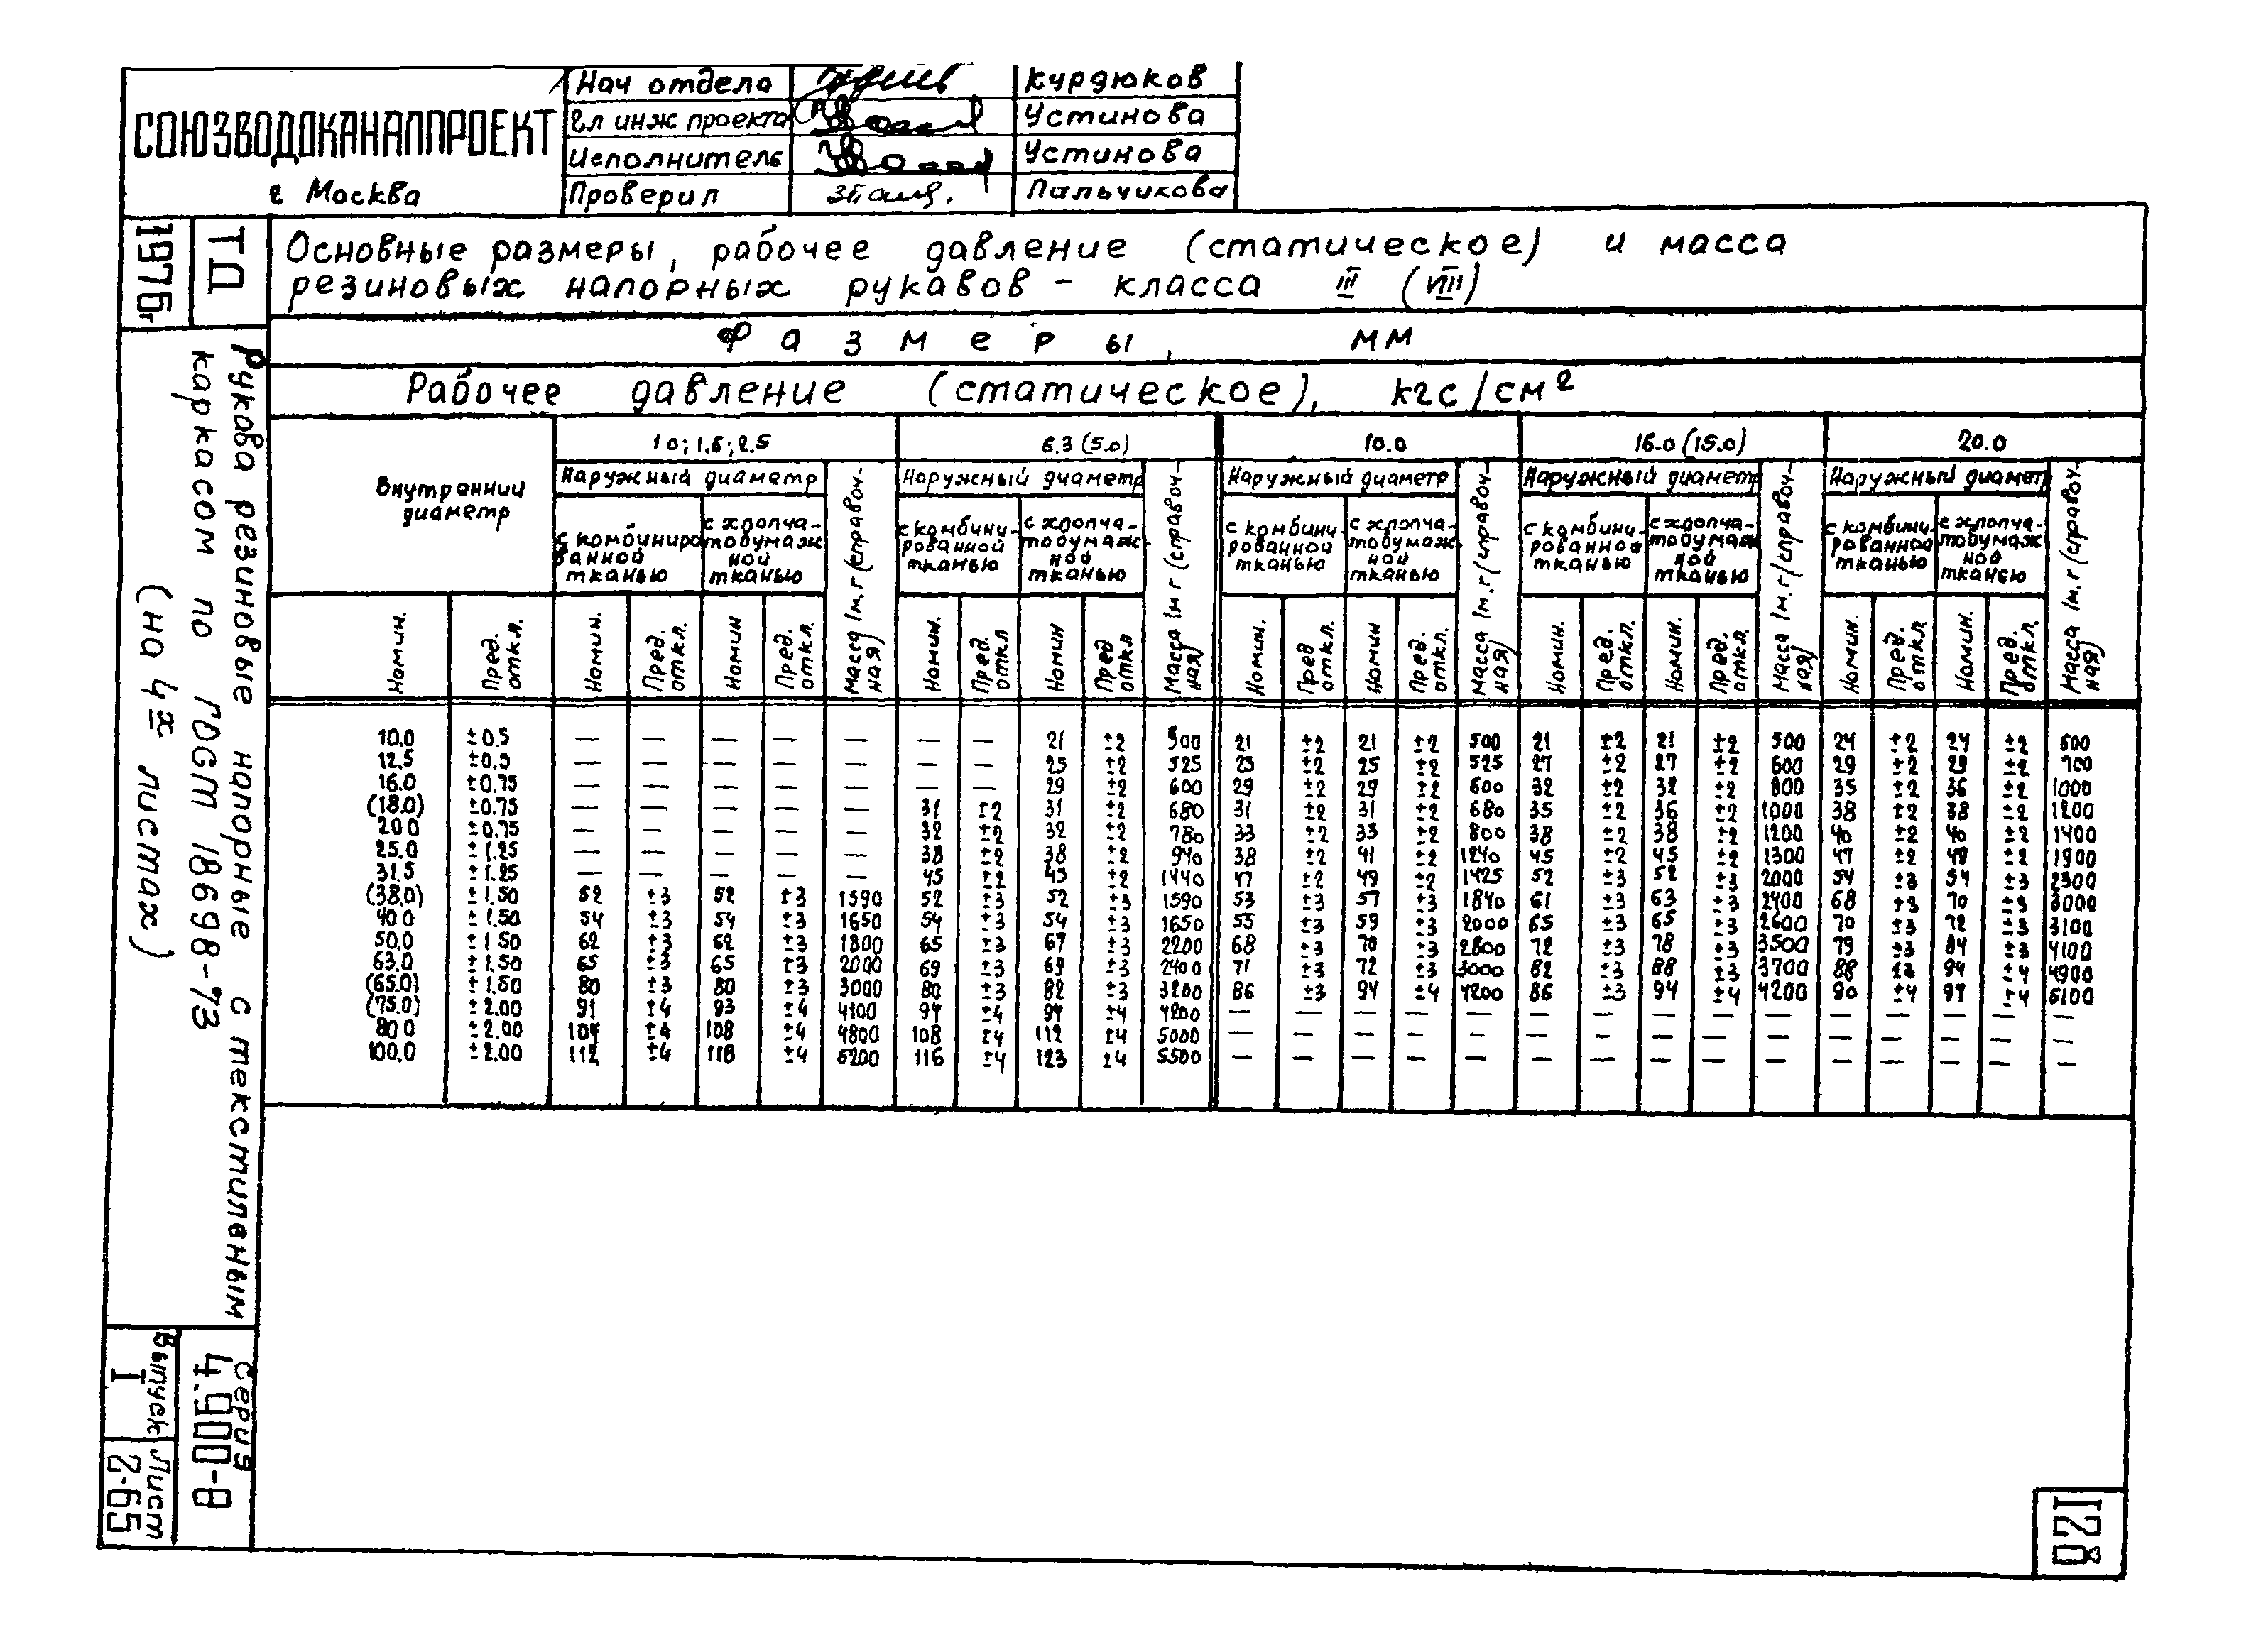 СОЮЗВОДОКАНАЛПРОЕКТ
г Москва
Нач отдела Курдюков
Гл инж проекта Устинова
Исполнитель Устинова
Проверил Пальчикова
1976г
ТД
Рукава резиновые напорные с текстильным
каркасом по ГОСТ 18698-73
(на 4х листах)
Серия
4.900-8
Выпуск
I
Лист
2-65
Основные размеры, рабочее давление (статическое) и масса
резиновых напорных рукавов - класса III (VIII)
Размеры, мм
Рабочее давление (статическое), кгс/см²
Внутренний диаметр
1.0; 1.6; 2.5 6.3 (5.0) 10.0 16.0 (15.0) 20.0
Наружный диаметр Наружный диаметр Наружный диаметр Наружный диаметр Наружный диаметр
с комбинированной тканью с хлопчатобумажной тканью Масса 1м.г (справочная)
с комбинированной тканью с хлопчатобумажной тканью Масса 1м г (справочная)
с комбинированной тканью с хлопчатобумажной тканью Масса 1м.г (справочная)
с комбинированной тканью с хлопчатобумажной тканью Масса 1м.г (справочная)
с комбинированной тканью с хлопчатобумажной тканью Масса 1м.г (справочная)
Номин. Пред. откл. Номин. Пред. откл. Номин Пред. откл. Номин. Пред. откл. Номин Пред откл Номин. Пред откл. Номин Пред. откл. Номин. Пред. откл. Номин. Пред. откл. Номин. Пред. откл Номин. Пред. откл.
10.0 ±0.5 — — — — — — — 21 ±2 500 21 ±2 21 ±2 500 21 ±2 21 ±2 500 24 ±2 24 ±2 600
12.5 ±0.5 — — — — — — — 25 ±2 525 25 ±2 25 ±2 525 27 ±2 27 ±2 600 29 ±2 29 ±2 700
16.0 ±0.75 — — — — — — — 29 ±2 600 29 ±2 29 ±2 600 32 ±2 32 ±2 800 35 ±2 36 ±2 1000
(18.0) ±0.75 — — — — — 31 ±2 31 ±2 680 31 ±2 31 ±2 680 35 ±2 36 ±2 1000 38 ±2 38 ±2 1200
20 0 ±0.75 — — — — — 32 ±2 32 ±2 780 33 ±2 33 ±2 800 38 ±2 38 ±2 1200 40 ±2 40 ±2 1400
25.0 ±1.25 — — — — — 38 ±2 38 ±2 940 38 ±2 41 ±2 1240 45 ±2 45 ±2 1300 47 ±2 49 ±2 1900
31.5 ±1.25 — — — — — 45 ±2 45 ±2 1440 47 ±2 49 ±2 1425 52 ±3 52 ±3 2000 54 ±3 54 ±3 2300
(38.0) ±1.50 52 ±3 52 ±3 1590 52 ±3 52 ±3 1590 53 ±3 57 ±3 1840 61 ±3 63 ±3 2400 68 ±3 70 ±3 3000
40 0 ±1.50 54 ±3 54 ±3 1650 54 ±3 54 ±3 1650 55 ±3 59 ±3 2000 65 ±3 65 ±3 2600 70 ±3 72 ±3 3100
50.0 ±1 50 62 ±3 62 ±3 1800 65 ±3 67 ±3 2200 68 ±3 70 ±3 2800 72 ±3 78 ±3 3500 79 ±3 84 ±3 4100
63.0 ±1.50 65 ±3 65 ±3 2000 69 ±3 69 ±3 2400 71 ±3 72 ±3 3000 82 ±3 88 ±3 3700 88 ±3 94 ±4 4900
(65.0) ±1.50 80 ±3 80 ±3 3000 80 ±3 82 ±3 3200 86 ±3 94 ±4 4200 86 ±3 94 ±4 4200 90 ±4 97 ±4 5100
(75.0) ±2.00 91 ±4 93 ±4 4100 94 ±4 94 ±4 4200 — — — — — — — — — — — — — — —
80 0 ±2.00 104 ±4 108 ±4 4800 108 ±4 112 ±4 5000 — — — — — — — — — — — — — — —
100.0 ±2.00 112 ±4 118 ±4 5200 116 ±4 123 ±4 5500 — — — — — — — — — — — — — — —
128